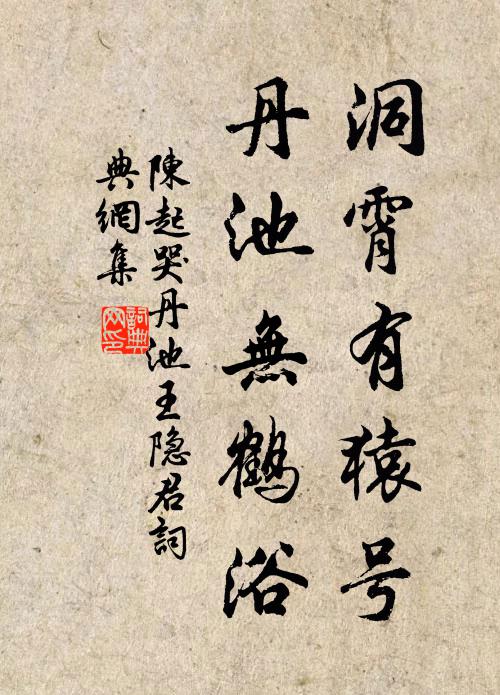 洞霄有猿号
丹池無鶴浴
陳起哭丹池王隐君詞
典網集
詞典网印